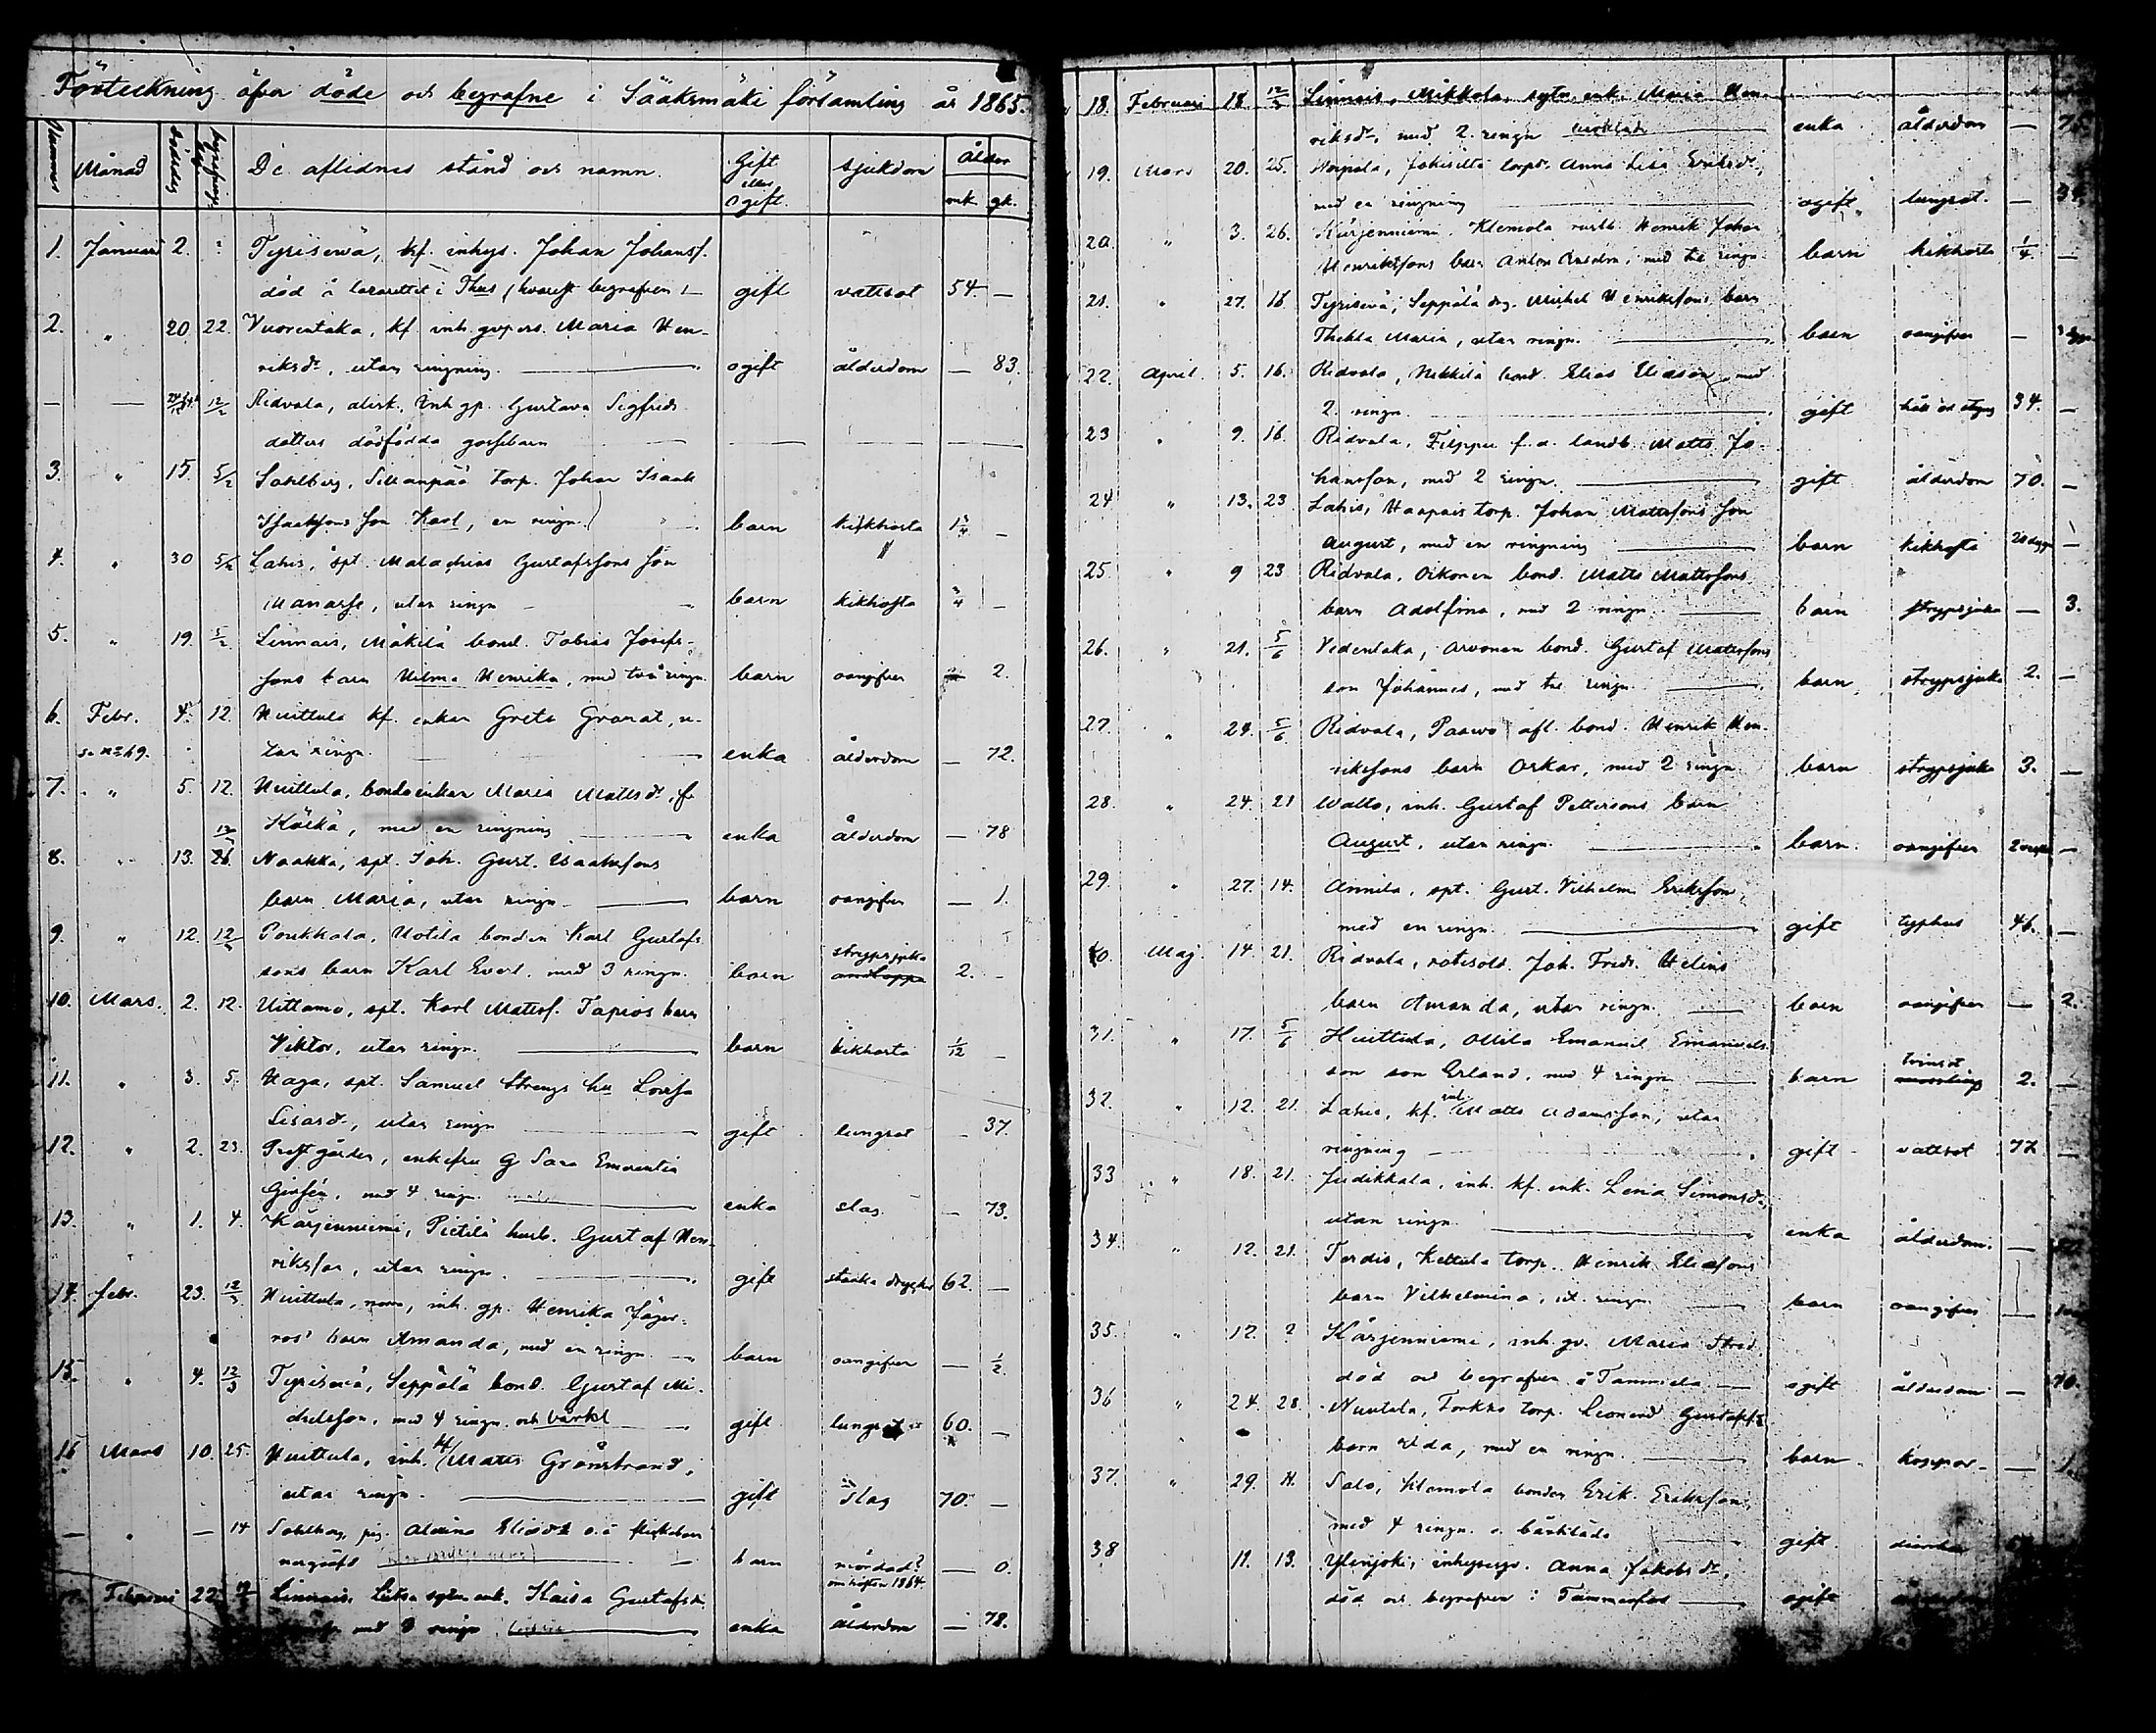 Förteckning öfver döde och begrafne i Sääksmäki församling år 1865.
Nummer Månad dödsdag begrafnings- De aflidnes stånd och namn. Gift eller Ogift. sjukdom Ålder mk. qk.
1. Januari 2. ? Tyrisevä, kf. inhys. Johan Johansf.
död å lazarettet i Thus (hvarest begrafven) gift vattsot 54. —
2. " 20. 22. Vuorentaka, kf. inh. Maria Hen-
riksdr, utan ringning. ogift ålderdom — 83.
— — 12/2 Ridvala, inh. qp. Gustava Sigfrids
dotters dödfödda gossebarn
3. " 15. 5/2 Sahlberg, Sillanpää torp. Johan Isaak
Isaakssons son Karl, en ringn. barn kikhosta 1 3/4 —
4. " 30 5/2 Lahis, spt. Malachias Gustafssons son
Manasse, utan ringn barn kikhosta 3/4 —
5. " 19. 5/2 Linnais, Mäkilä bond. Tobias Josefs-
sons barn Hilma Henrika, med två ringn. barn oangifven 2.
6. Febr. 4. 12. Huittula kf. enkan Greta Granat, u-
tan ringn. enka ålderdom — 72.
7. " 5. 12. Huittula, bondeenkan Maria Mattsdr, f.
Kölkä, med en ringning enka ålderdom — 78
8. " 13. 12/3 26. Naakka, spt. Joh. Gust. Isaakssons
barn Maria, utan ringn. barn oangifven — 1.
9. " 12. 12/3 Pourkkala, Uotila bonden Karl Gustafs
sons barn Karl Evert, med 3 ringn. barn strypsjuka andtäppa 2. —
10. Mars. 2. 12. Uittamo, spt. Karl Matsf. Tapios barn
Viktor, utan ringn. barn kikhosta 1/12 —
11. " 3. 5. Haga, spt. Samuel Strengs hu Lovisa
Lisasdr, utan ringn gift lungsot — 37.
12. " 2. 23. Prestgården, enkefru G Sara Emerentia
med 4 ringn. enka slag — 73.
13. " 1. 4. Kärjenniemi, Pietilä husb. Gustaf Hen-
riksson, utan ringn. gift starka drycker 62. —
14. febr. 23. 12/3 Huittula, inh. qp. Henrika Jäger-
roos' barn Amanda, med en ringn. barn oangifven — 1/2
15. " 4. 12/3 Tyrisevä, Seppälä bond. Gustaf Mi-
chelsson, med 4 ringn. och gift lungsot 60. —
16 Mars 10. 25. Huittula, inh. kf Matts Grönstrand,
utan ringn. gift slag 70. —
— " — 14 Sahlberg, pig. Alvina flickebarn
barn mördad? om hösten 1864. — 0.
Februari 22. Linnais, enk. Kaisa Gustafsdr
med 3 ringn enka ålderdom — 78.
18. Februari 18. 12/3 Linnais, Mikkola, sytn. enk. Maria Hen-
riksdr, med 2 ringn enka ålderdom — 75.
19. Mars 20. 25. torpdr. Anna Lisa Eriksdr,
med en ringning ogift lungsot. — 34
20. " 3. 26. Kärjenniemi, Klemola rustb. Henrik Johan
Henrikssons barn Anton Anselm, med tre ringn. barn kikhosta 1/4 —
21. " 27. 16. Tyrisevä, Seppälä drg. Michel Henrikssons barn
Thekla Maria, utan ringn. barn oangifven —
22. April. 5. 16. Ridvala, Nikkilä bond. Elias Eliasson, med
2. ringn. gift håll och styng 34. —
23 " 9. 16. Ridvala, Filppu f.d. landb. Matts Jo-
hansson, med 2 ringn. gift ålderdom 70. —
24 " 13. 23 Lahis, Haapais torp. Johan Mattssons son
August, med en ringning barn kikhosta 20 dygn —
25. " 9 23 Ridvala, Oikonen bond. Matts Mattssons
barn Adolfina, med 2 ringn. barn strypsjuka — 3.
26. " 21. 5/6 Vedentaka, Arvonen bond. Gustaf Mattssons
son Johannes, med tre ringn. barn strypsjuka 2. —
27. " 24. 5/6 Ridvala, Paavo afl. bond. Henrik Hen-
rikssons barn Oskar, med 2 ringn. barn strypsjuka 3. —
28. " 24. 21 Walto, inh. Gustaf Pettersons barn
August, utan ringn. barn oangifven —
29. " 27. 14. Annila, spt. Gust. Vilhelm Eriksson,
med en ringn. gift typhus 46. —
30. Maj. 14. 21. Ridvala, rotesold. Joh. Fredr. Helins
barn Amanda, utan ringn. barn oangifven — 2.
31. " 17. 5/6 Huittula, Ollila Emanuel Emanuels-
son son Erland, med 4 ringn barn 2. —
32. " 12. 21. Lahis, kf. inh. Matts Adamsson, utan
ringning gift vattsot 77 —
33 " 18. 21. Judikkala, inh. kf. enk. Lena Simonsdr,
utan ringn. enka ålderdom. —
34. " 12. 21. Tardis, Kettula torp. Henrik Eliassons
barn Vilhelmina, ut. ringn. barn oangifven —
35. " 12. ? Kärjenniemi, inh. qv. Maria
död och begrafven i Tammela ogift ålderdom — 70.
36 " 24. 28. Nuutala, Torkko torp. Leonard Gustafs
barn Ida, med en ringn. barn koppor — 1.
37. " 29. Salo, Klemola bonden Erik Eriksson,
med 4 ringn. o. bårkläde gift
38 11. 13. Ylenjoki, inhysesqv. Anna Jakobsdr,
död och begrafven i Tammerfors ogift